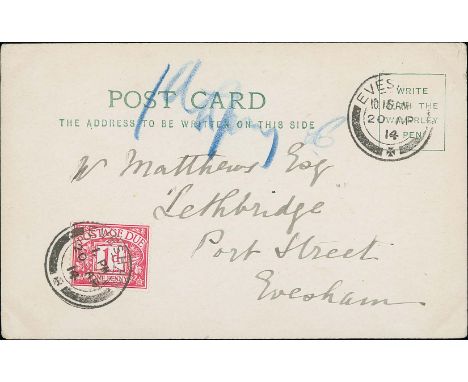 POST CARD
THE ADDRESS TO BE WRITTEN ON THIS SIDE
WRITE
WITH THE
WAVERLEY
PEN
EVES
10.15 AM
20 AP
14
W Matthews Esq
"Lethbridge"
Port Street
Evesham
POSTAGE DUE
1D
PENNY